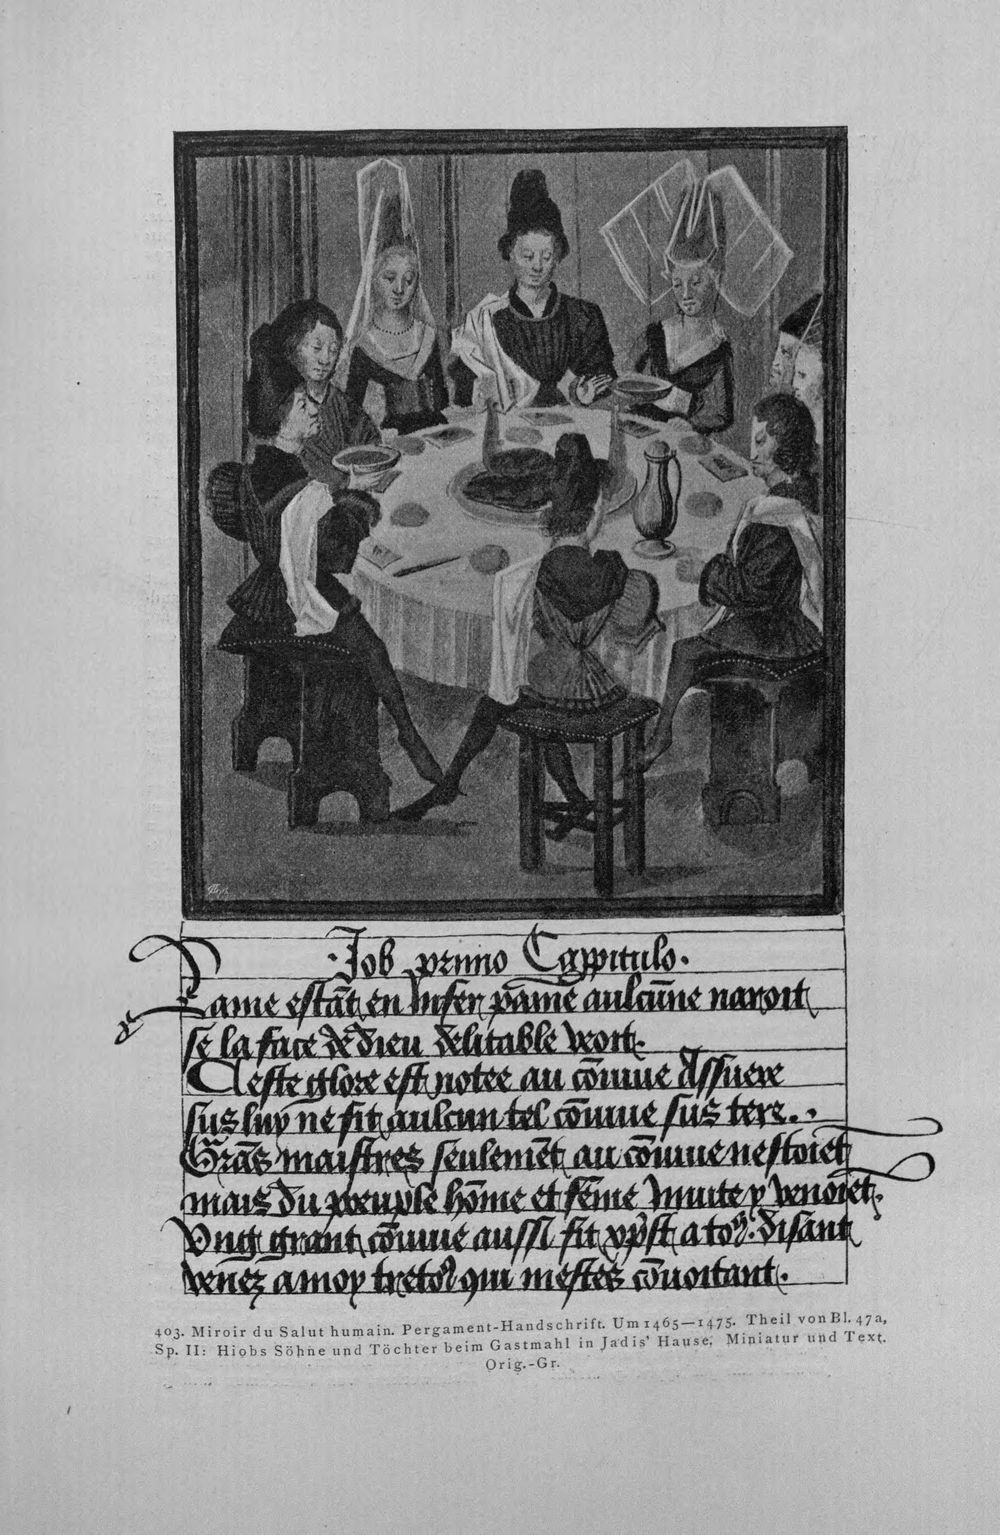 ·Job primo Capitulo·
Lame estãt en Infer pãme aulcũne navoit
se la face de dieu delitable veoit·
Ceste glore est notee au cõvive Assuere
sus luy ne fit aulcun tel cõvive sus tere..
Grãs maistres seulemẽt au cõvive nestoiẽt
mais du peuple hõme et fẽme Invite y venoiẽt·
Ung grant cõvive aussi fit xp̃st a to9· disant
venez a moy treto9 qui mestes cõvoitant·
403. Miroir du Salut humain. Pergament-Handschrift. Um 1465—1475. Theil von Bl. 47a,
Sp. II: Hiobs Söhne und Töchter beim Gastmahl in Jadis' Hause. Miniatur und Text.
Orig.-Gr.